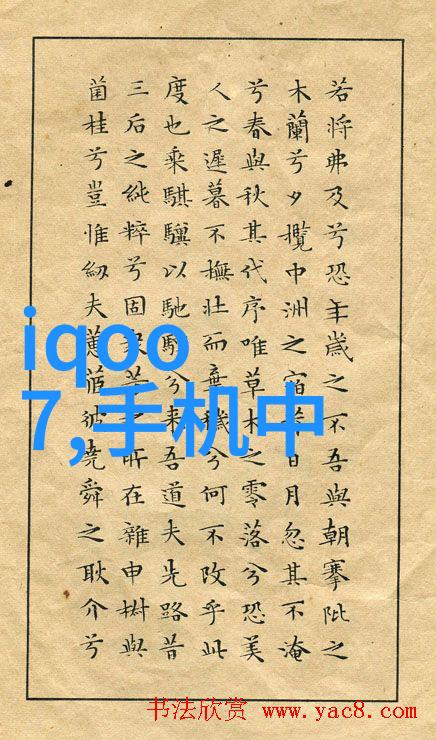 若將弗及兮恐年歲之不吾與朝搴阰之
木蘭兮夕攬中洲之宿莽日月忽其不淹
兮春與秋其代序唯草木之零落兮恐美
人之遲暮不撫壯而棄穢兮何不改乎此
度也乘騏驥以馳騁兮来吾道夫先路昔
三后之純粹兮固所在雜申椒與
菌桂兮豈惟紉夫蕙茝彼堯舜之耿介兮
iqoo
7,手机中
书法欣赏 www.yac8.com